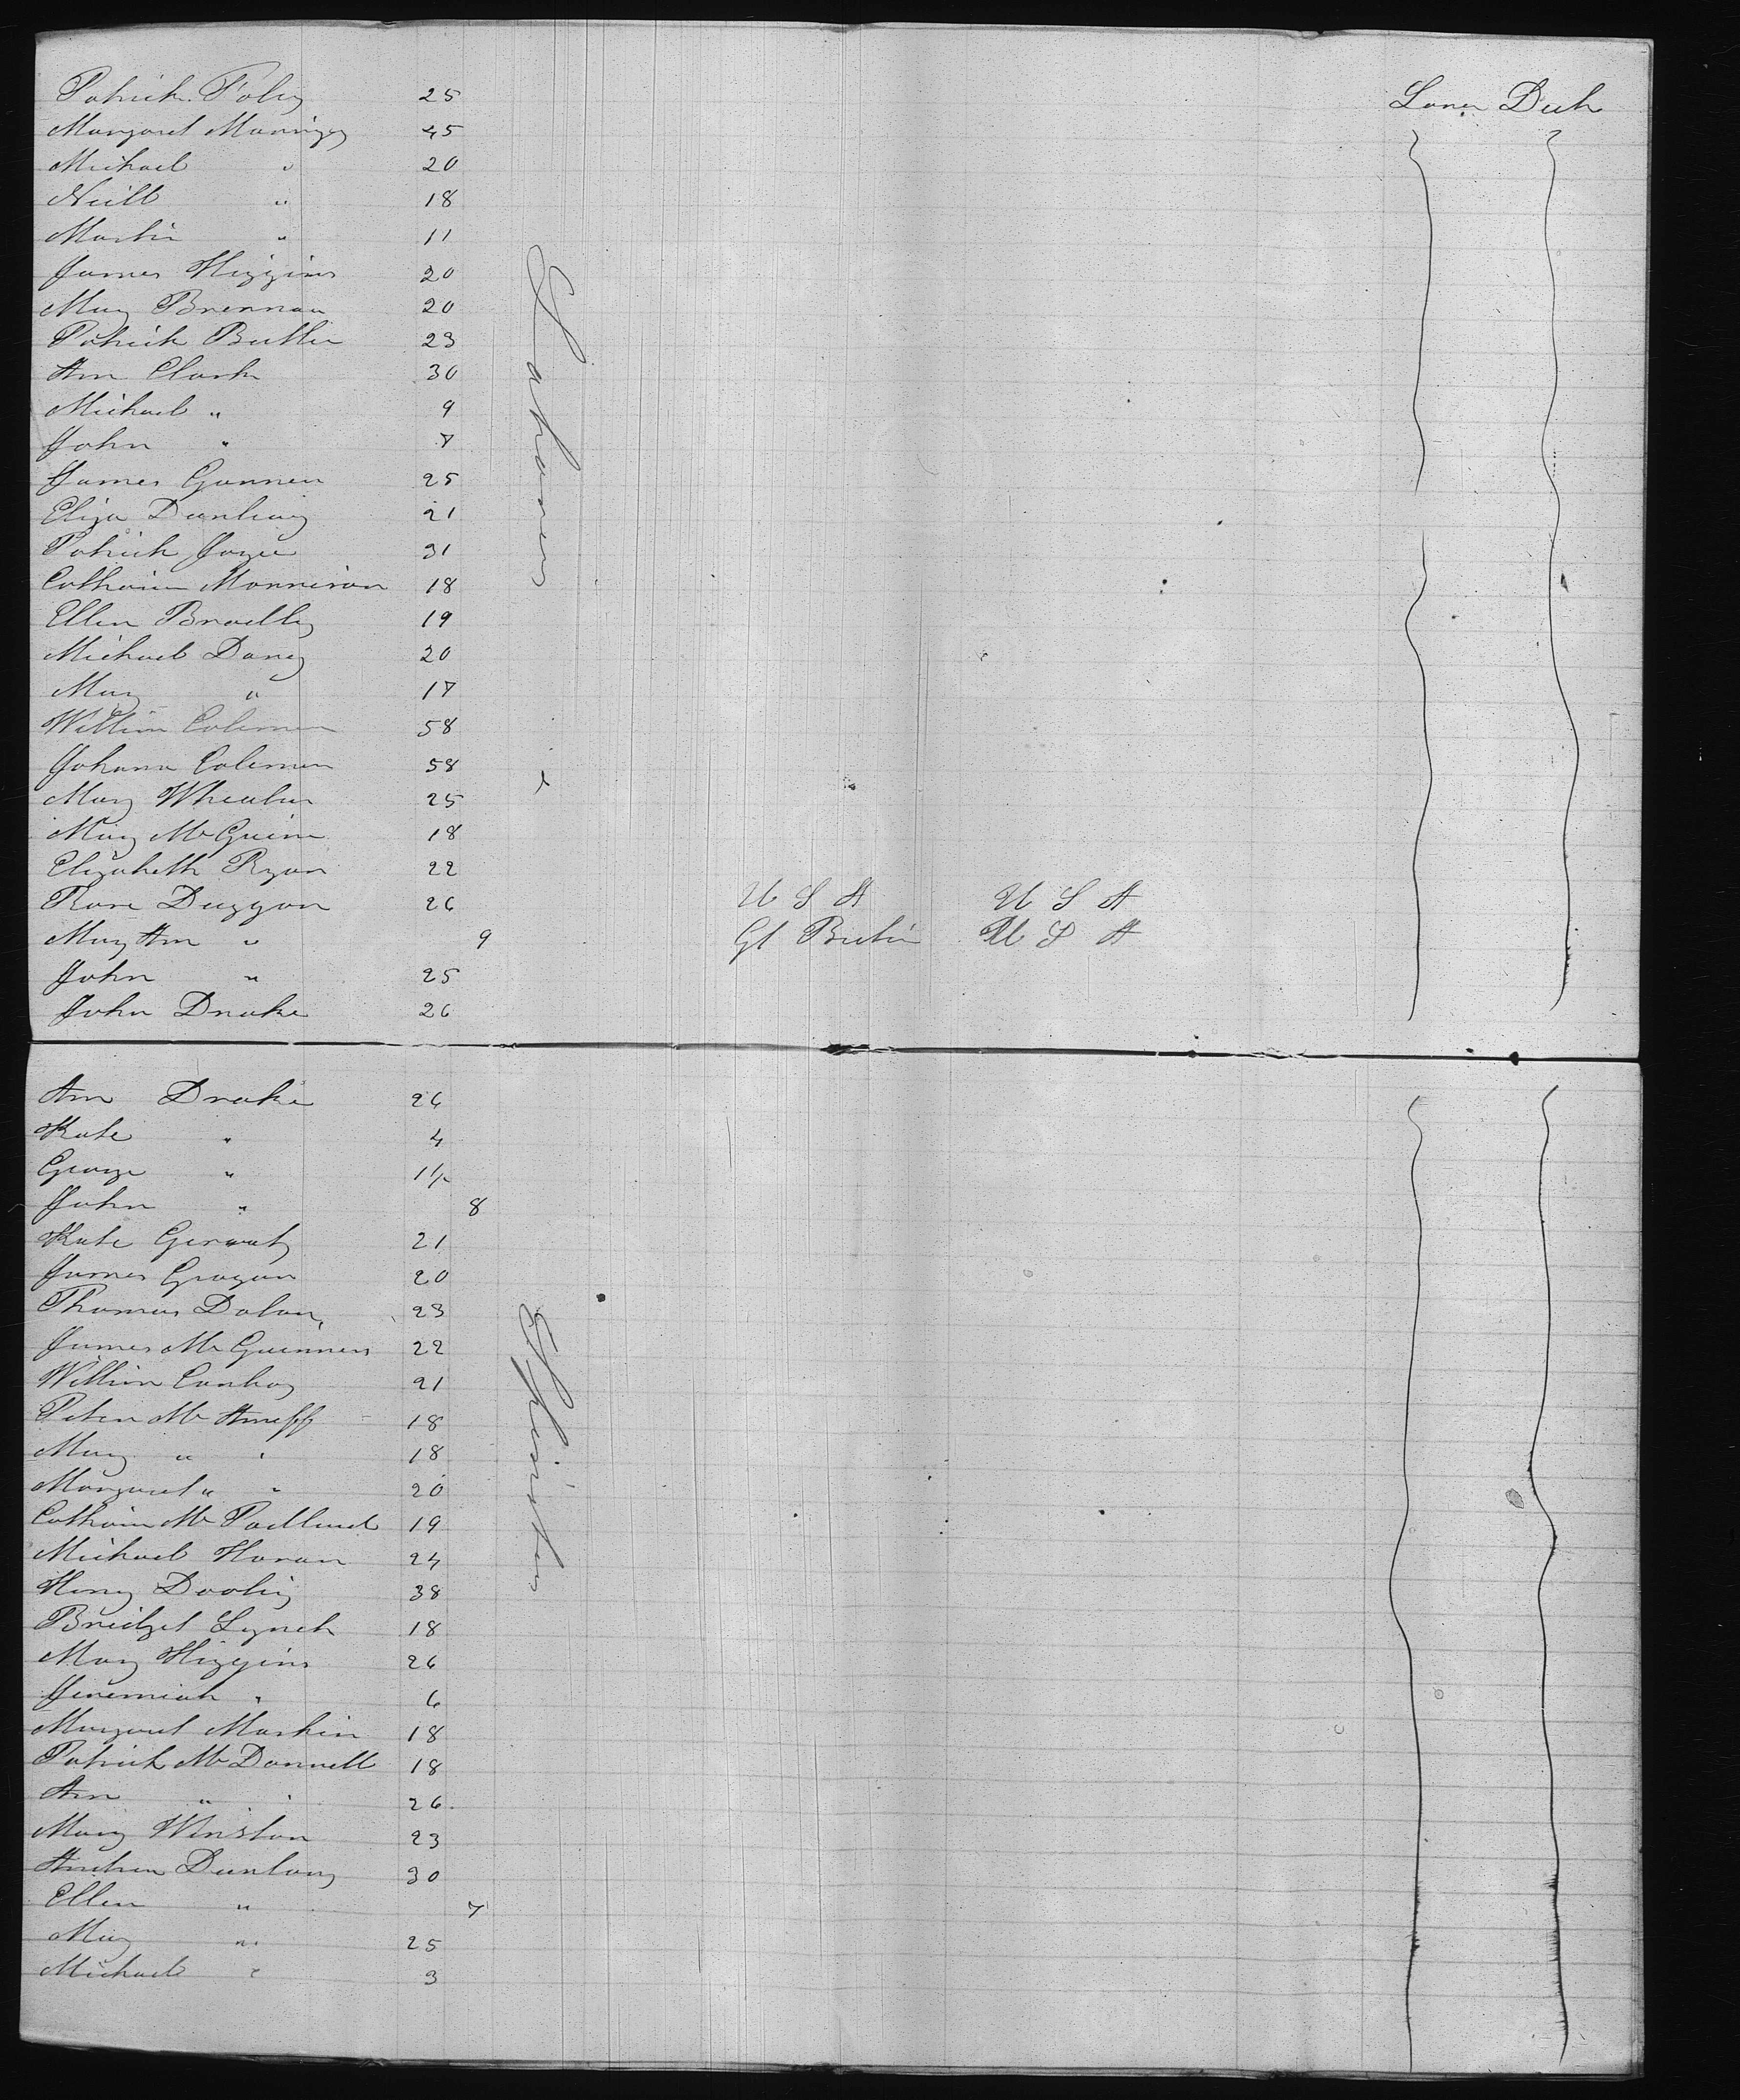 Patrick Foley 25 Lower Deck
Margaret 45
Michael " 20
Neill " 18
Martin " 11
James Higgins 20
Mary Brennan 20
Patrick Butler 23
Ann Clark 30
Michael " 9
John " 7
James Gannen 25
Eliza 21
Patrick Joyce 31
Catharine Morrison 18
Ellen Bradley 19
Michael Daney 20
Mary " 17
William Coleman 58
Johana Coleman 58
Mary 25
Mary Mc 18
Elizabeth Ryan 22
Rose Duggan 26 U S A U S A
Mary Ann " 9 Gt Britain U S A
John " 25
John Drake 26
Labourers
Ann Drake 26
Kate " 4
George " 1½
John " 8
Kate Geraty 21
James Grogan 20
Thomas Dolan 23
James Mc 22
William Conboy 21
Peter Mc 18
Mary " " 18
Margaret " " 20
Catharine Mc 19
Michael Horan 24
Henry Dooling 38
Bridget Lynch 18
Mary Higgins 26
Jeremiah " 6
Margaret 18
Patrick McDonnell 18
Ann " " 26
Mary Winston 23
Andrew 30
Ellen " 7
Mary " 25
Michael " 3
Spinsters